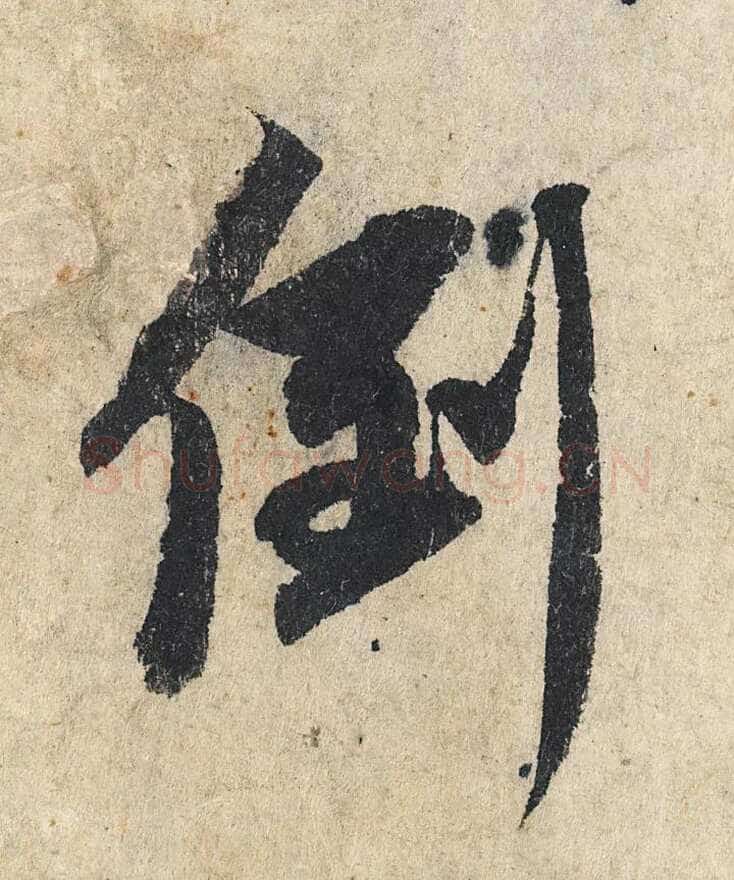 倒
Shufawang.CN